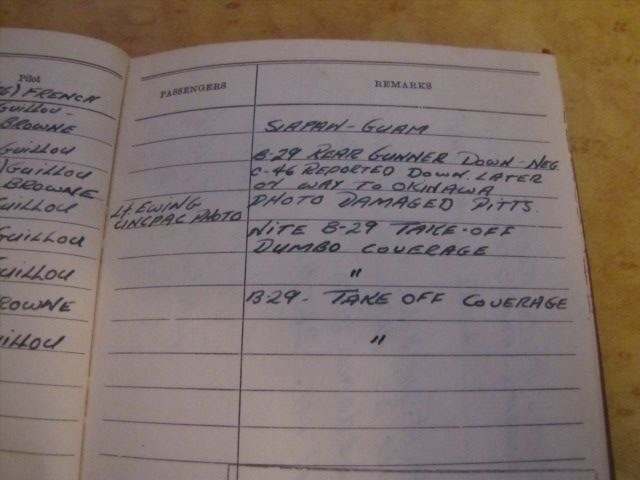 Pilot
PASSENGERS
REMARKS
) FRENCH
Guillou-
BROWNE
SIAPAN - GUAM
Guillou
B-29 REAR GUNNER DOWN - NEG.
Guillou
C-46 REPORTED DOWN. LATER
BROWNE
ON WAY TO OKINAWA
Guillou
Lt. EWING
PHOTO DAMAGED PITTS.
CINCPAC PHOTO
Guillou
NITE B-29 TAKE-OFF
DUMBO COVERAGE
uillou
"
ROWNE
B-29 - TAKE OFF COVERAGE
uillou
"